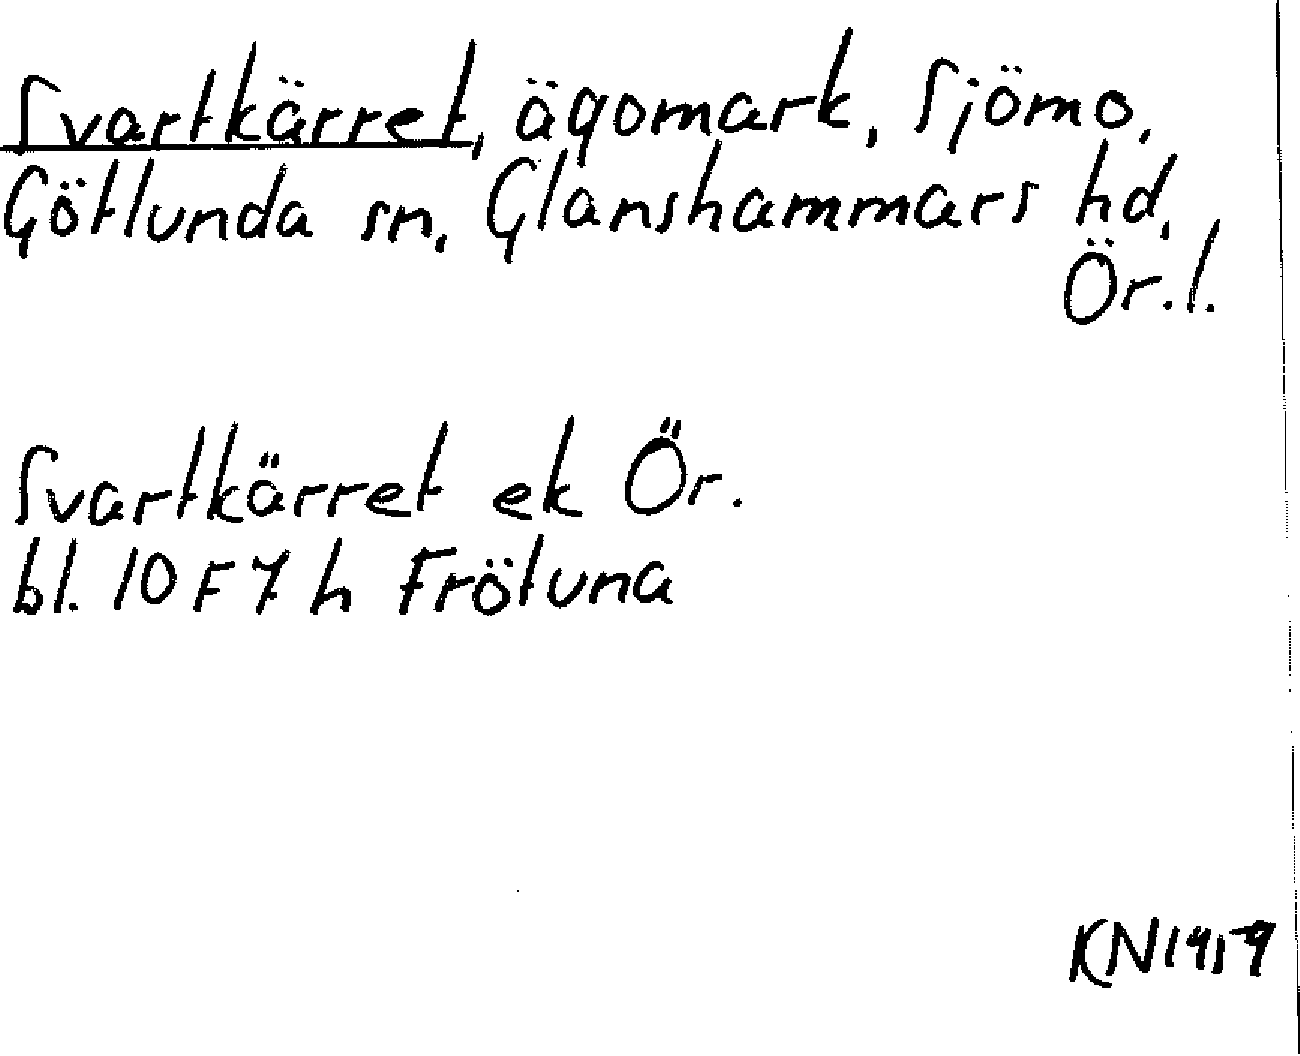 Svartkärret, ägomark, Sjömo,
Götlunda sn, Glanshammars hd,
Ör.l.
Svartkärret ek Ör.
bl. 10 F 7 h Frötuna